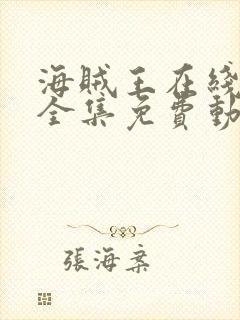 海賊王在綫
全集免費動
張海棻